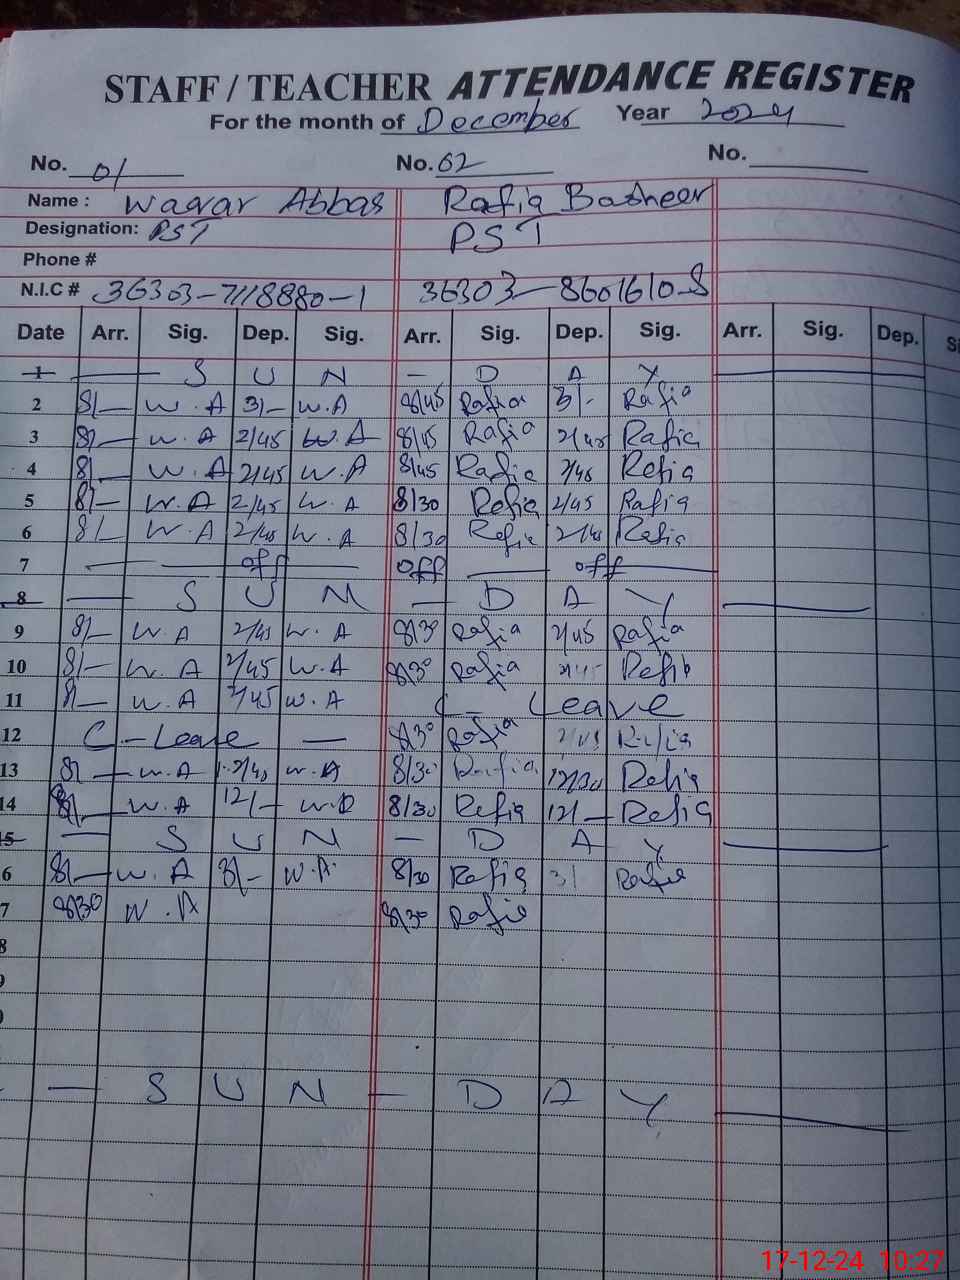 STAFF / TEACHER ATTENDANCE REGISTER
For the month of December Year 2024
No. 01 No. 02 No.
Name : Waqar Abbas Rafiq Basheer
Designation: PST PST
Phone #
N.I.C # 36303-7118880-1 36303-8601610-8
Date Arr. Sig. Dep. Sig. Arr. Sig. Dep. Sig. Arr. Sig. Dep. Si
1 — S U N — D A Y
2 8/— W.A 3/— W.A 8/45 Rafiq 3/- Rafiq
3 8/— W.A 2/45 W.A 8/45 Rafiq 2/45 Rafiq
4 8/— W.A 2/45 W.A 8/45 Rafiq 2/45 Rafiq
5 8/— W.A 2/45 W.A 8/30 Rafiq 2/45 Rafiq
6 8/— W.A 2/45 W.A 8/30 Rafiq 2/45 Rafiq
7 — — off — off — off —
8 — S U N — D A Y
9 8/— W.A 2/45 W.A 8/30 Rafiq 2/45 Rafiq
10 8/— W.A 2/45 W.A 8/30 Rafiq 2/45 Rafiq
11 8/— W.A 2/45 W.A C- Leave
12 C-Leave — 8/30 Rafiq 2/45 Rafiq
13 8/— W.A W.A 8/30 Rafiq 12/30 Rafiq
14 8/— W.A 12/— W.A 8/30 Rafiq 12/— Rafiq
15 — S U N — D A Y
6 8/— W.A 3/— W.A 8/30 Rafiq 3/ Rafiq
7 8/30 W.A 8/30 Rafiq
8
9
— S U N — D A Y
17-12-24 10:27